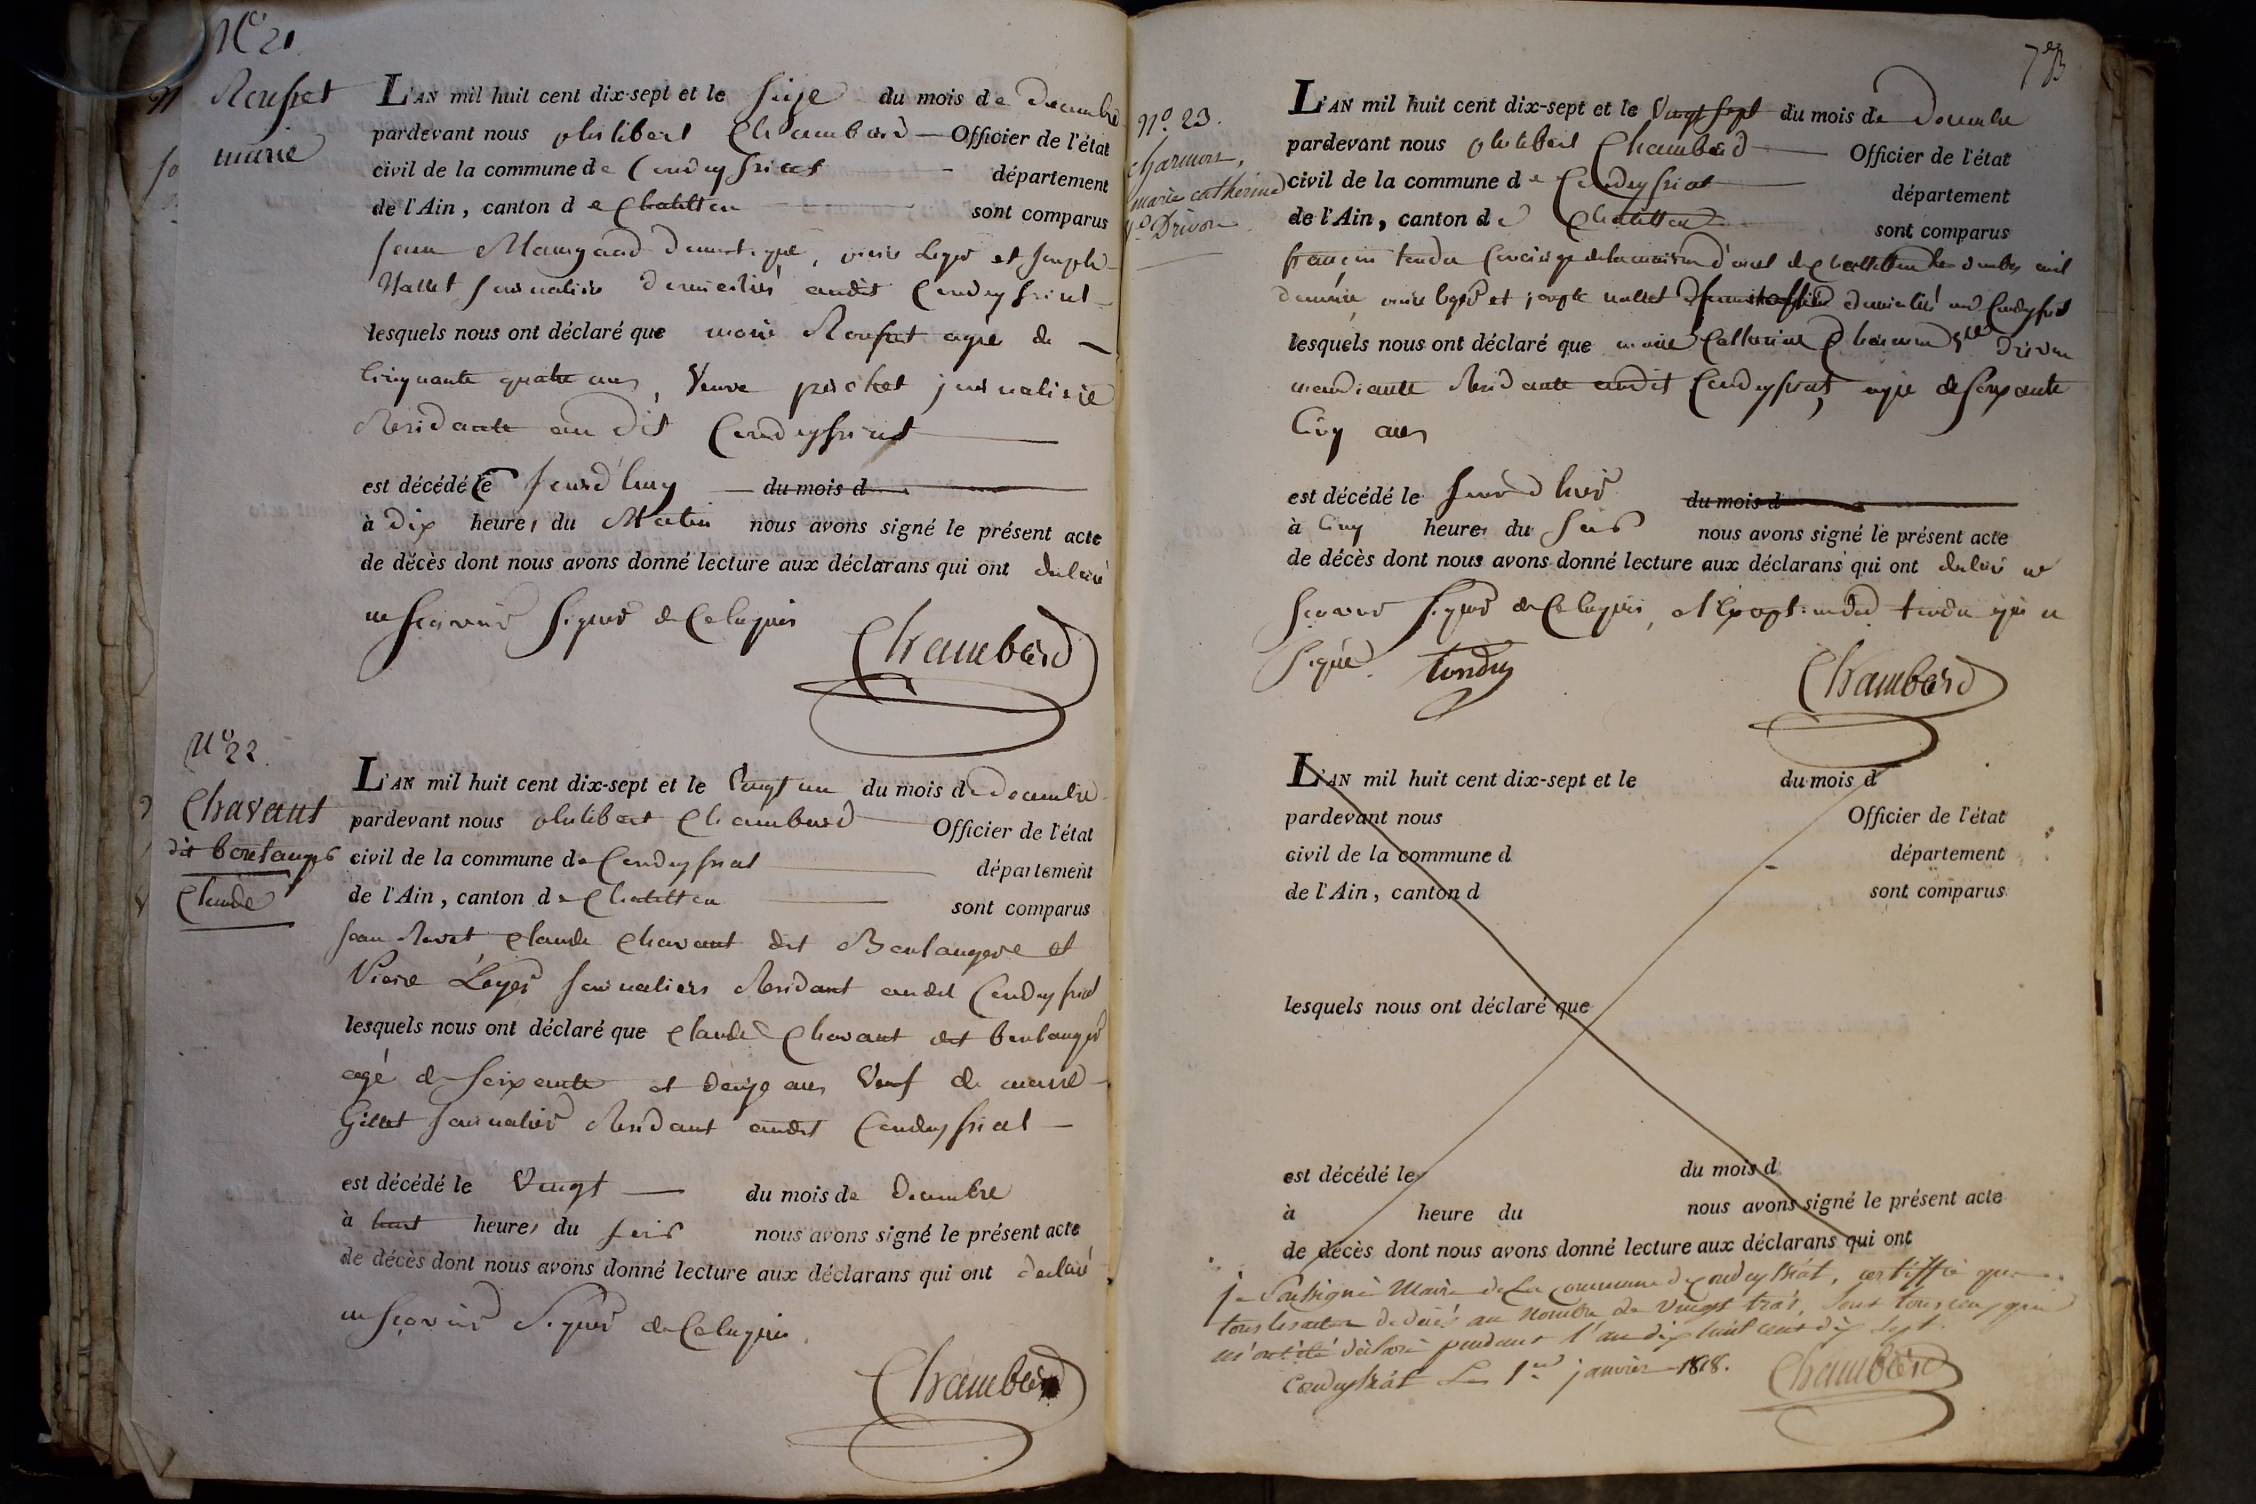 N° 21.
Rousset
marie
L'AN mil huit cent dix-sept et le seize du mois de Decembre
pardevant nous philibert Chambard Officier de l'état
civil de la commune de Condeyssiat département
de l'Ain, canton de Chatillon sont comparus
Jean domestique, Leger et Joseph
Nallet Journalier audit Condeyssiat
lesquels nous ont déclaré que marie Rousset agée de
Cinquante quatre ans, Veuve pochet journaliere
Residante au dit Condeyssiat
est décédé le Jourd'huy du mois d
à Dix heures du Matin nous avons signé le présent acte
de décès dont nous avons donné lecture aux déclarans qui ont declaré
ne Sçavoir Signer de Ce Requis
Chambard
N° 22.
Chavant
dit boulanger
Claude
L'AN mil huit cent dix-sept et le Vingt un du mois de Decembre
pardevant nous philibert Chambard Officier de l'état
civil de la commune de Condeyssiat département
de l'Ain, canton de Chatillon sont comparus
Jean Claude Chavant dit Boulangere et
Leger Journaliers Residant audit Condeyssiat
lesquels nous ont déclaré que Claude Chavant dit boulanger
agé de Soixante et Douze ans Veuf de marie
Gillet Journalier Residant audit Condeyssiat
est décédé le Vingt du mois de Decembre
à huit heures du Soir nous avons signé le présent acte
de décès dont nous avons donné lecture aux déclarans qui ont declaré
ne Sçavoir Signer de Ce Requis.
Chambard
N° 23.
Charmon,
marie catherine
Drivon
L'AN mil huit cent dix-sept et le Vingt Sept du mois de Decembre
pardevant nous philibert Chambard Officier de l'état
civil de la commune de Condeyssiat département
de l'Ain, canton de Chatillon sont comparus
françois tondu Concierge de la maison d'arret de Chatillon
leger et joseph nallet Condeyssiat
lesquels nous ont déclaré que marie Catherine Drivon
mendiante Residante audit Condeyssiat, agée de Soixante
Cinq ans
est décédé le Jour d'hier du mois d
à Cinq heures du Soir nous avons signé le présent acte
de décès dont nous avons donné lecture aux déclarans qui ont declaré ne
Sçavoir Signer de Ce Requis, a l'exception dud. tondu qui a
Signé. tondu
Chambard
L'AN mil huit cent dix-sept et le du mois d
pardevant nous Officier de l'état
civil de la commune d département
de l'Ain, canton d sont comparus
lesquels nous ont déclaré que
est décédé le du mois d
à heure du nous avons signé le présent acte
de décès dont nous avons donné lecture aux déclarans qui ont
je Soussigné Maire de La Commune de Condeyssiat, certiffie que
tous les actes de décès au nombre de vingt trois, Sont tous ceux qui
m'ont été déclaré pendant l'an dix huit cent dix Sept.
Condeyssiat Le 1er janvier 1818. Chambard